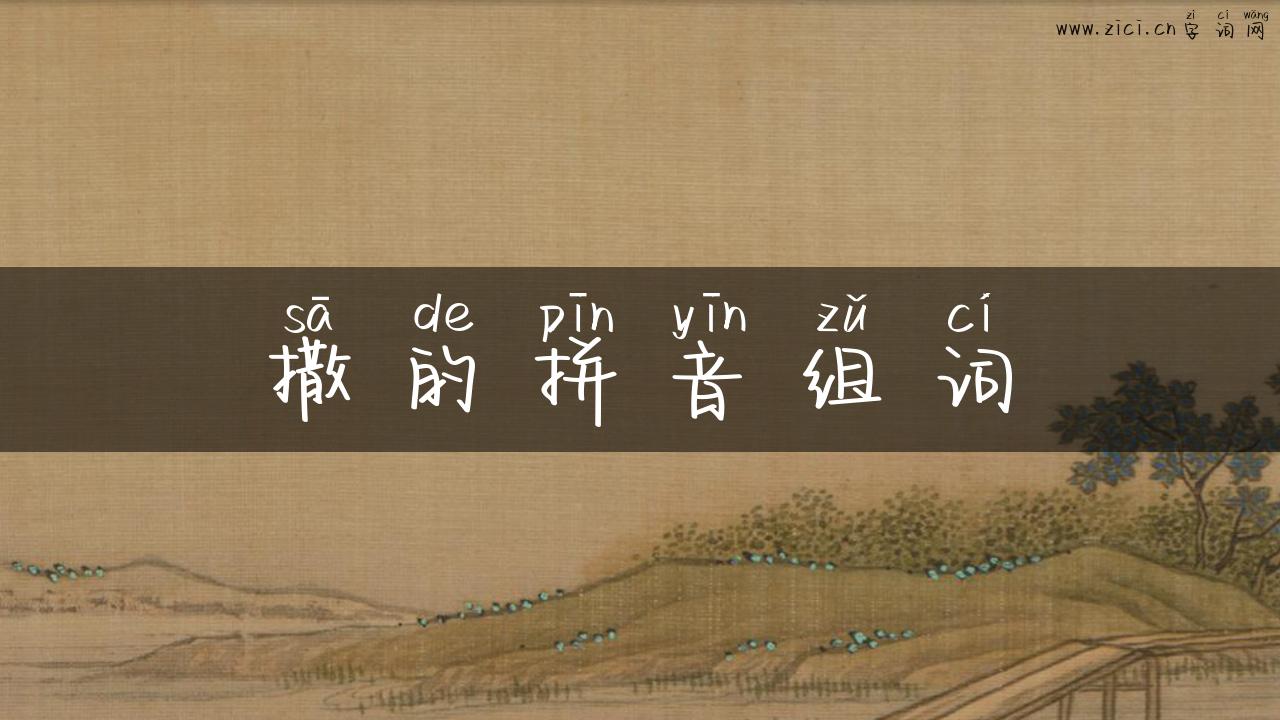 zì cí wǎng
www.zici.cn字词网
sā de pīn yīn zǔ cí
撒的拼音组词